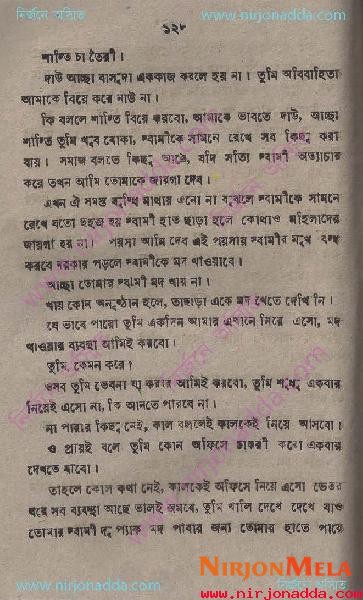 নির্জনে অসিত
www.nirjonadda.com
১২৮
শান্তি চা তৈরী।
দাউ আচ্ছা বাসুদা এককাজ করলে হয় না। তুমি অবিবাহিতা
আমাকে বিয়ে করে নাউ না।
কি বললে শান্তি বিয়ে করবো, আমাকে ভাবতে দাউ, আচ্ছা
শান্তি তুমি খুব বোকা, স্বামীকে সামনে রেখে সব কিছু করা
যায়। সমাজ বলতে কিছু আছে, যদি সত্যি স্বামী অত্যাচার
করে তখন আমি তোমাকে জায়গা দেব।
এখন ঐ সমস্ত বুদ্ধি মাথায় এনো না বুঝলে স্বামীকে সামনে
রেখে যতো সহজ হয় স্বামী হাত ছাড়া হলে কোথাও মহিলাদের
জায়গা হয় না। পয়সা আমি দেব এই পয়সায় স্বামীর মুখ বন্ধ
করবে দরকার পড়লে স্বামীকে মদ খাওয়াবে।
আচ্ছা তোমার স্বামী মদ খায় না।
খায় কোন অনুষ্ঠান হলে, তাছাড়া একে মদ খেতে দেখি নি।
যে ভাবে পারো তুমি একদিন আমার এখানে নিয়ে এসো, মদ
খাওয়ার ব্যবস্থা আমিই করবো।
তুমি, কেমন করে?
ওসব তুমি ভেবনা যা করার আমিই করবো, তুমি শুধু একবার
নিয়েই এসো না, কি আনতে পারবে না।
না পারার কিছু নেই, কাল বললেই কালকেই নিয়ে আসবো।
ও প্রায়ই বলে তুমি কোন অফিসে চাকরী করো একবার
দেখতে যাবো।
তাহলে কোন কথা নেই, কালকেই অফিসে নিয়ে এসো ভেতর
ঘরে সব ব্যবস্থা আছে ভালই জমবে, তুমি খালি দেখে দেখে যাও
তোমার স্বামী দু প্যাক মদ খাবার জন্য তোমার হাতে পায়ে
NIRJONMELA
নির্জনে অসিত
www.nirjonadda.com